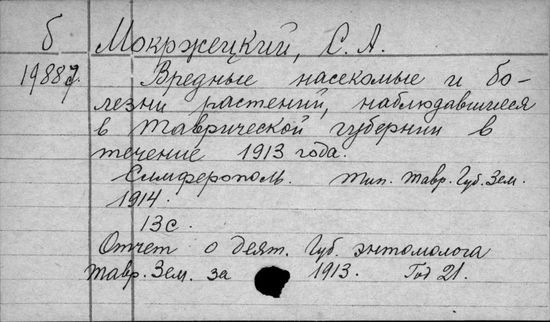 б Мокржецкий, С. А.
1988д. Вредные насекомые и бо-
лезни растений, наблюдавшиеся
в Таврической губернии в
течение 1913 года.
Симферополь. тип. Тавр. Губ. Зем.
1914.
13с.
Отчет о деят. Губ. энтомолога
Тавр. Зем. за 1913. Год 21.